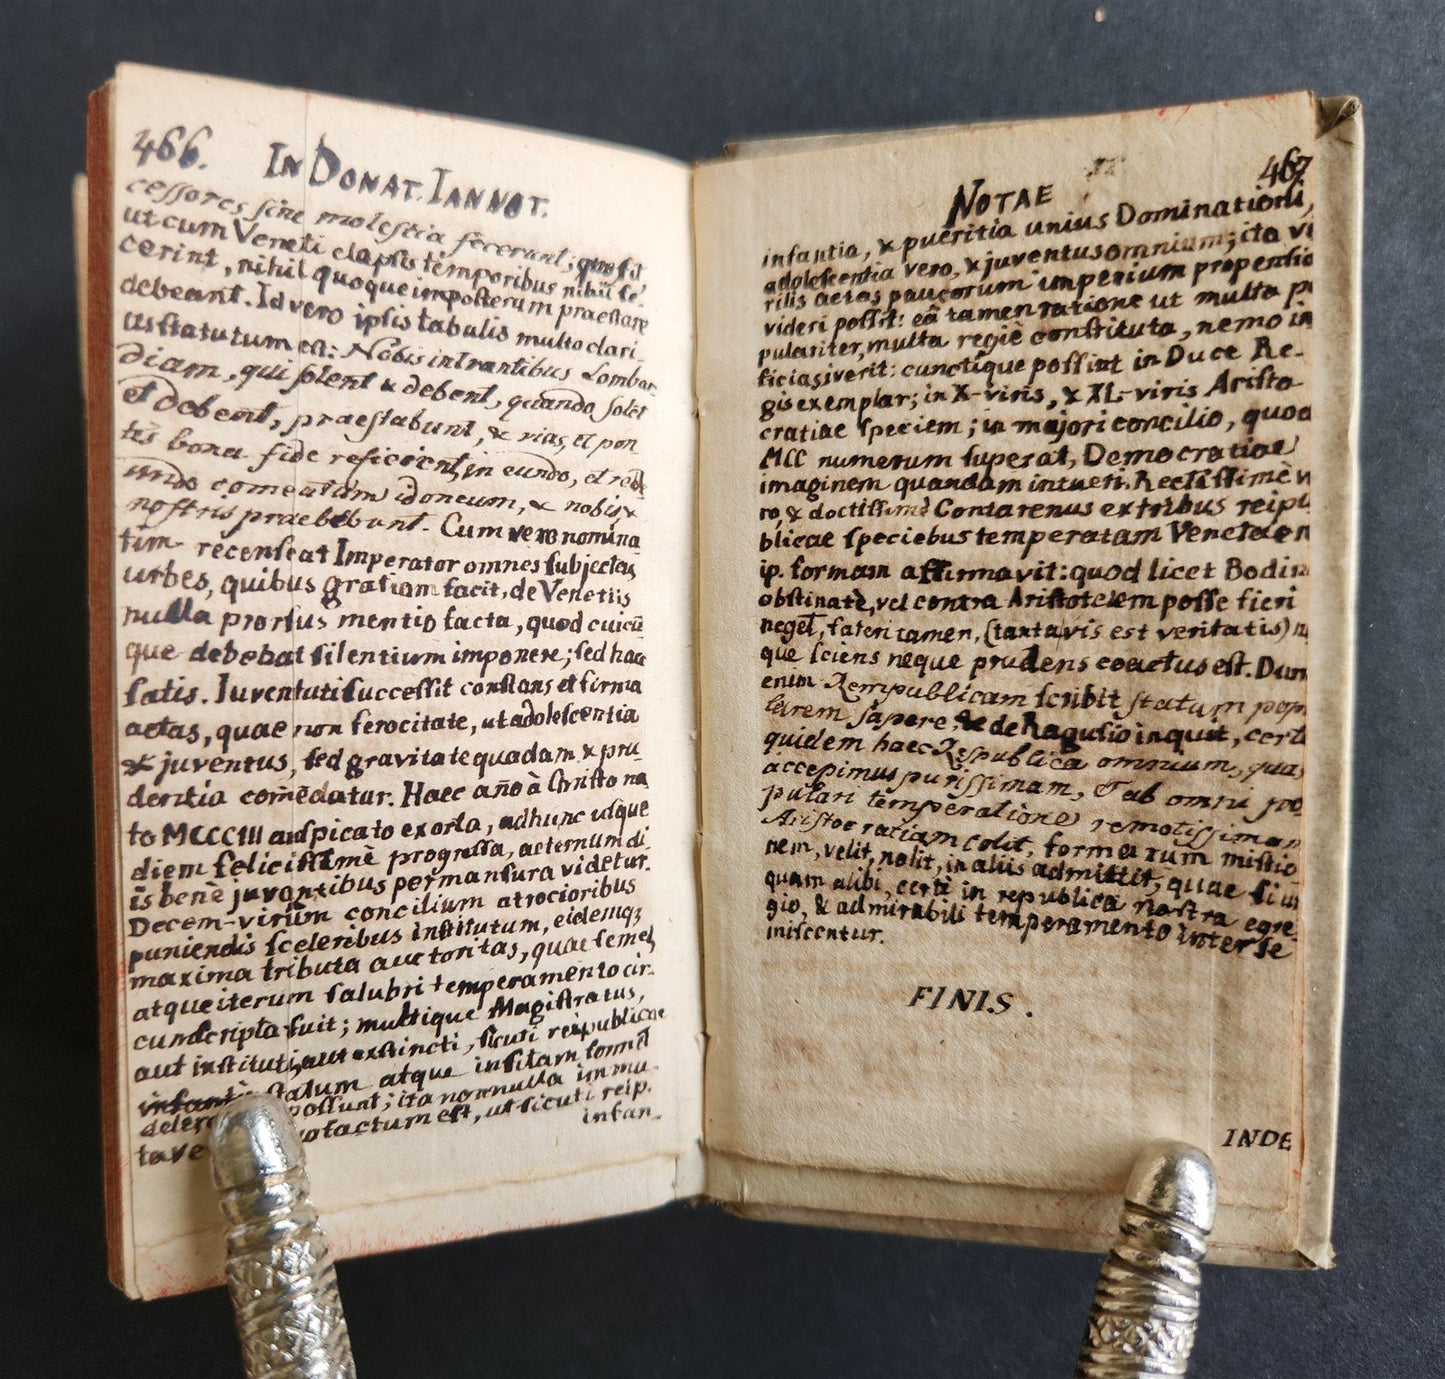 466.
IN DONAT. IANNOT.
cessores sine molestia fecerunt; quo fit
ut cum Veneti elapsis temporibus nihil fe-
cerint, nihil quoque imposterum praestare
debeant. Id vero ipsis tabulis multo clari-
us statutum est: Nobis intrantibus Lombar-
diam, qui solent & debent, quando solet
et debent, praestabunt, & vias, et pon
tes bona fide reficient, in eundo, et rede
undo comeatum idoneum, & nobis &
nostris praebebunt. Cum vero nomina
tim recenseat Imperator omnes subjectas
urbes, quibus gratiam facit, de Venetiis
nulla prorsus mentio facta, quod cuicū
que debebat silentium imponere; sed haec
satis. Iuventuti successit constans et firma
aetas, quae non ferocitate, ut adolescentia
& juventus, sed gravitate quadam & pru
dentia com̄edatur. Haec año à Christo na
to MCCCIII auspicato exorta, ad hunc usque
diem felicissimè progressa, aeternum di-
is bene juvantibus permansura videtur.
Decem-virûm concilium atrocioribus
puniendis sceleribus institutum, eidemq;
maxima tributa auctoritas, quae semel
atque iterum salubri temperamento cir-
cumscripta fuit; multique Magistratus,
aut instituti, aut exstincti, sicuti reipublicae
statum atque insitam
possunt; ita nonnulla immu-
factum est, ut sicuti reip.
infan-
NOTAE
467.
infantia, & pueritia unius Dominationi,
adolescentia vero, & juventus omnium; ita vi
rilis aetas paucorum imperium propensio
videri possit: eâ tamen ratione ut multa po
pulariter, multa regiè constituta, nemo in
ficias iverit: cunctique possint in Duce Re-
gis exemplar; in X-viris, & XL-viris Aristo
cratiae speciem; in majori concilio, quod
MCC numerum superat, Democratiae
imaginem quandam intueri. Rectissimè v
ro, & doctissimè Contarenus ex tribus reipu
blicae speciebus temperatam Venetae
ip. formam affirmavit: quod licet Bodin
obstinatè, vel contra Aristotelem posse fieri
neget, fateri tamen, (tanta vis est veritatis) n
que sciens neque prudens coactus est. Dum
enim Rempublicam scribit statum popu
larem sapere, & de Ragusio inquit, certe
quidem haec Respublica omnium, quas
accepimus purissimam, & ab omni po
pulari temperatione remotissiman
Aristocratiam colit, formarum mistio
nem, velit, nolit, in aliis admittit; quae si us
quam alibi, certè in republica nostra egre-
gio, & admirabili temperamento inter se
miscentur.
FINIS.
INDE